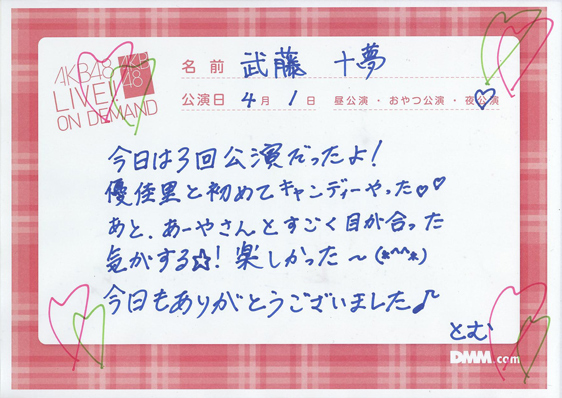 AKB48
LIVE!!
ON DEMAND
AKB
48
名前 武藤 十夢
公演日 4月 1日 昼公演・おやつ公演・夜公演
今日は3回公演だったよ!
優佳里と初めてキャンディーやった♡♡
あと、あーやさんとすごく目が合った
気がする☆!楽しかった〜(*^^*)
今日もありがとうございました♪
とむ
DMM.com